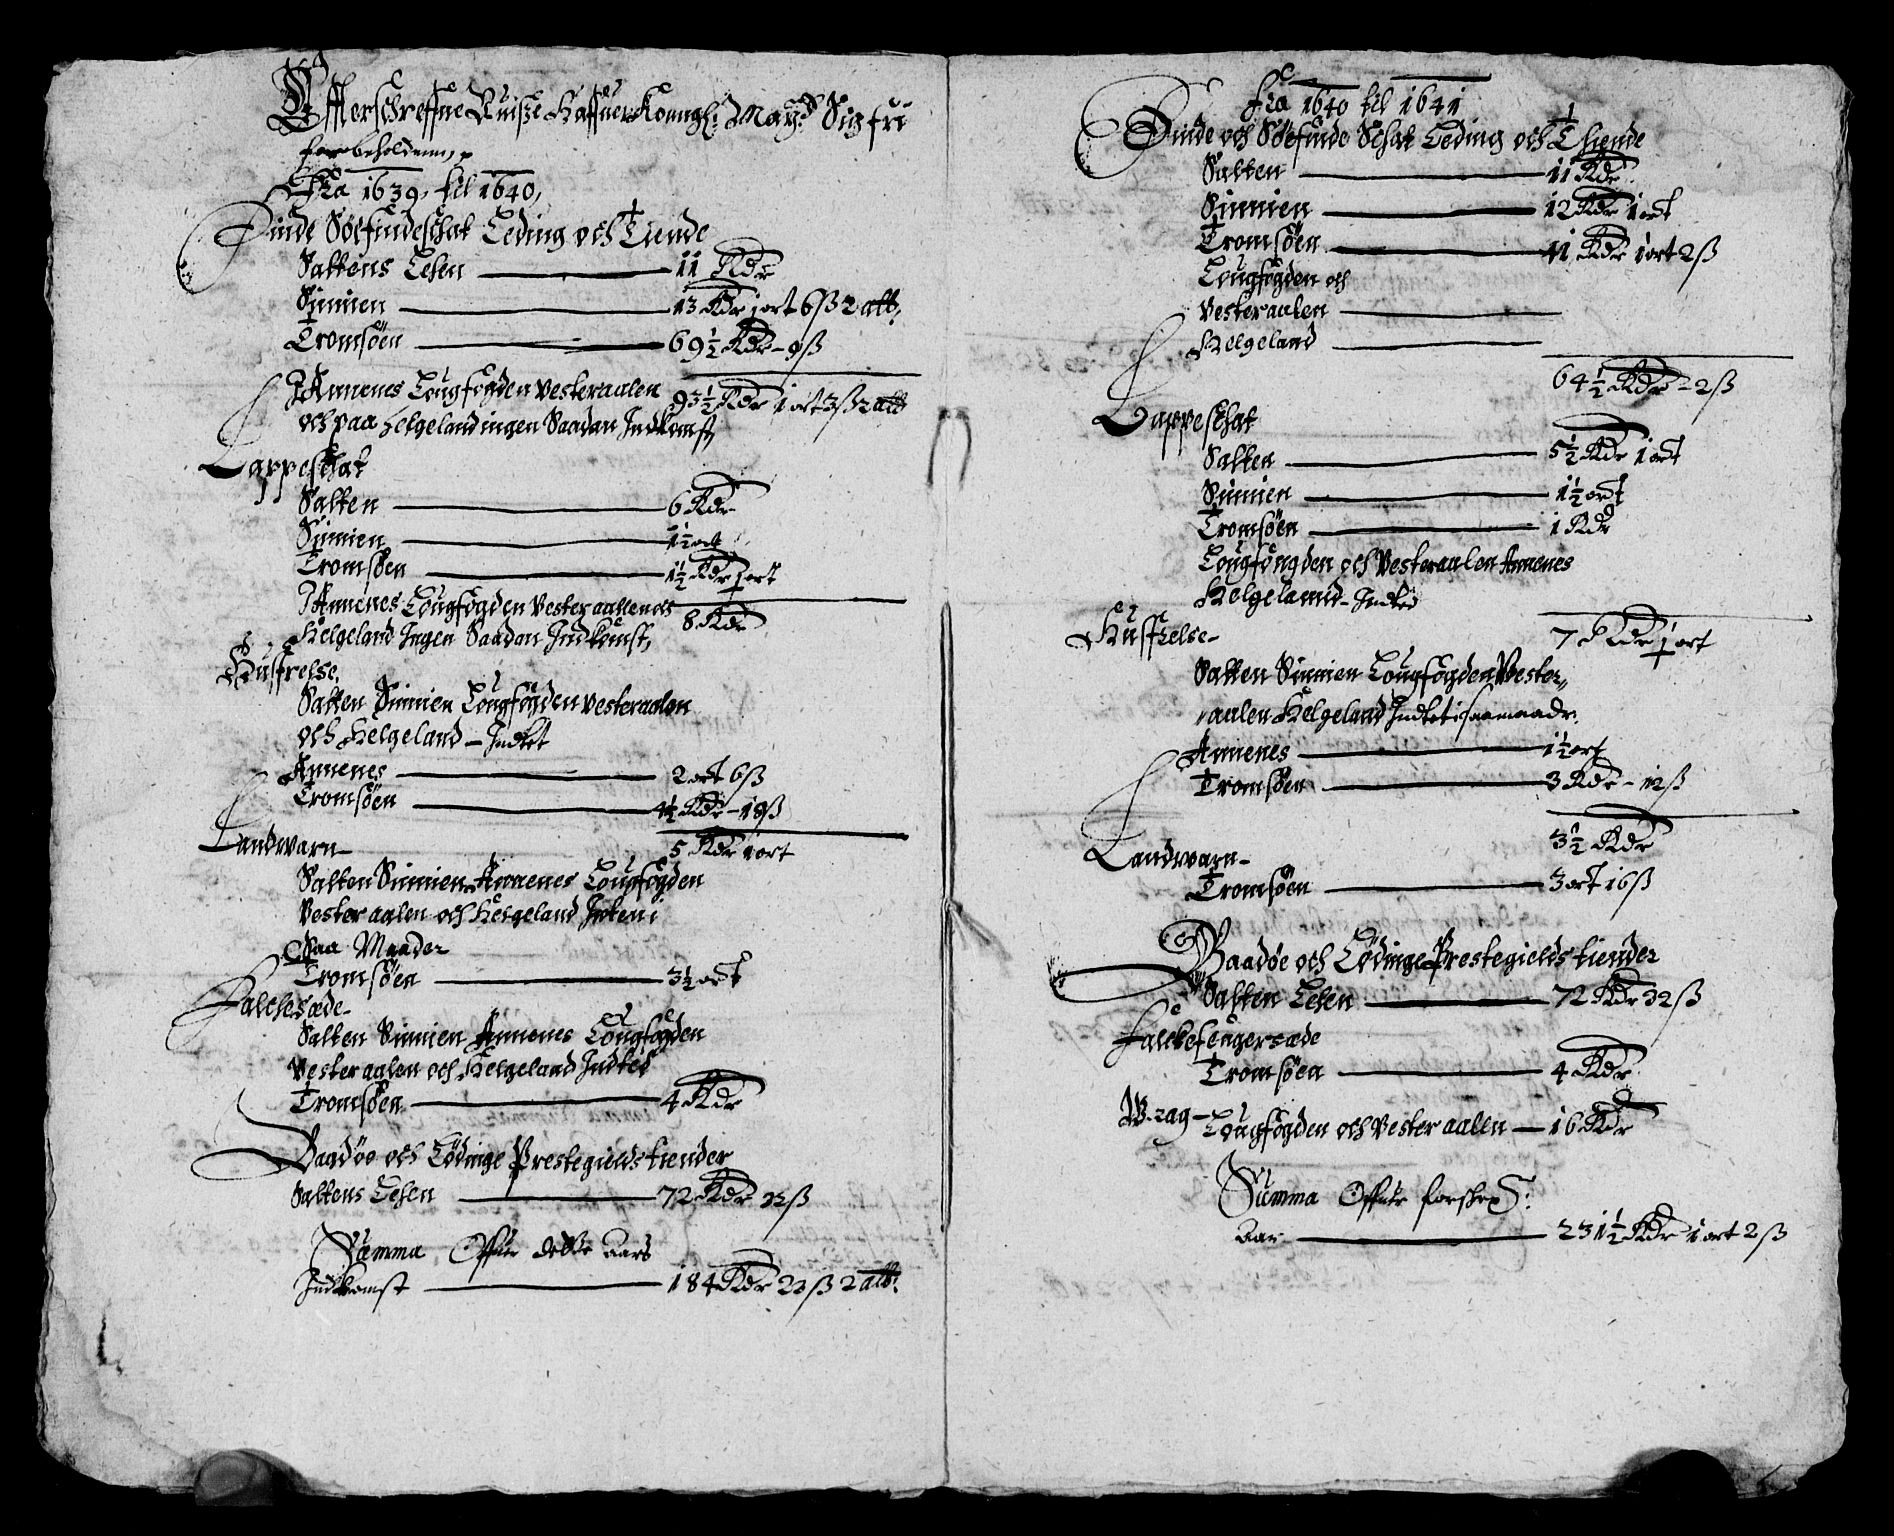 Effterschreffne Uuisze Haffuer Konngl: May:tt Sig fri
forbeholdenn,
Fra 1639, til 1640,
Finde Söefindeschat Leding och Tiende
Saltens Lehn 11 Rdr
Sinnien 13 Rdr 1 ort 6 ß 2 alb,
Tromsöen 69½ Rdr - 9 ß
93½ Rdr 1 ort 3 ß 2 alb
J Annenes Lougfogden Vesteraalen
och paa Helgeland ingen Saadan Indkomst
Lappeschat
Salten 6 Rdr
Sinnien 1½ ort
Tromsöen 1½ Rdr ½ ort
J Annenes Lougfogden Vesteraallen och
Helgeland Ingen Saadan Indkomst, 8 Rdr
Husfrelse,
Salten Sinnien Lougfogden Vesteraalen
och Helgeland - Indtet
Annenes 2 ort 6 ß
Tromsöen 4½ Rdr - 18 ß
5 Rdr 1 ort
Landvarn -
Salten Sinnien Annenes Lougfogden
Vesteraalen och Helgeland Inten i
Saa Maader
Tromsöen 3½ ort
Falchesæde -
Salten Sinnien Annenes Lougfogden
Vesteraalen och Helgeland Indtet
Tromsöen 4 Rdr
Baadöe och Lödinge Prestegields tiender
Saltens Lehen 72 Rdr 32 ß
Summa Offuer dette Aars
Indkomst 184 Rdr 23 ß 2 alb:
Fra 1640 til 1641
Finde och Söefinde Schat Leding och Thiende
Salten 11 Rdr
Sinnien 12 Rdr 1 ort
Tromsöen 41 Rdr 1 ort 2 ß
Lougfogden och
Vesteraalen
Helgeland
64½ Rdr - 2 ß
Lappeschat
Salten 5½ Rdr 1 ort
Sinnien 1½ ort
Tromsöen 1 Rdr
Lougfongden och Vesteraalen Annenes
Helgelannd - Indted
7 Rdr ½ ort
Husffrelse -
Salten Sinnien Lougfogden Vester,,
,,aalen Helgeland Indtet i saamaadr.
Annenes 1½ ort
Tromsöen 3 Rdr - 12 ß
3½ Rdr
Landvarn -
Tromsöen 3 ort 16 ß
Baadöe och Lödinge Prestegields tiender
Salten Lehen 72 Rdr 32 ß
Falckefengersæde
Tromsöen 4 Rdr
Wrag - Lougfogden och Vesteraalen 16 Rdr
Summa Offuer forschreffne:
Aar 231½ Rdr 1 ort 2 ß